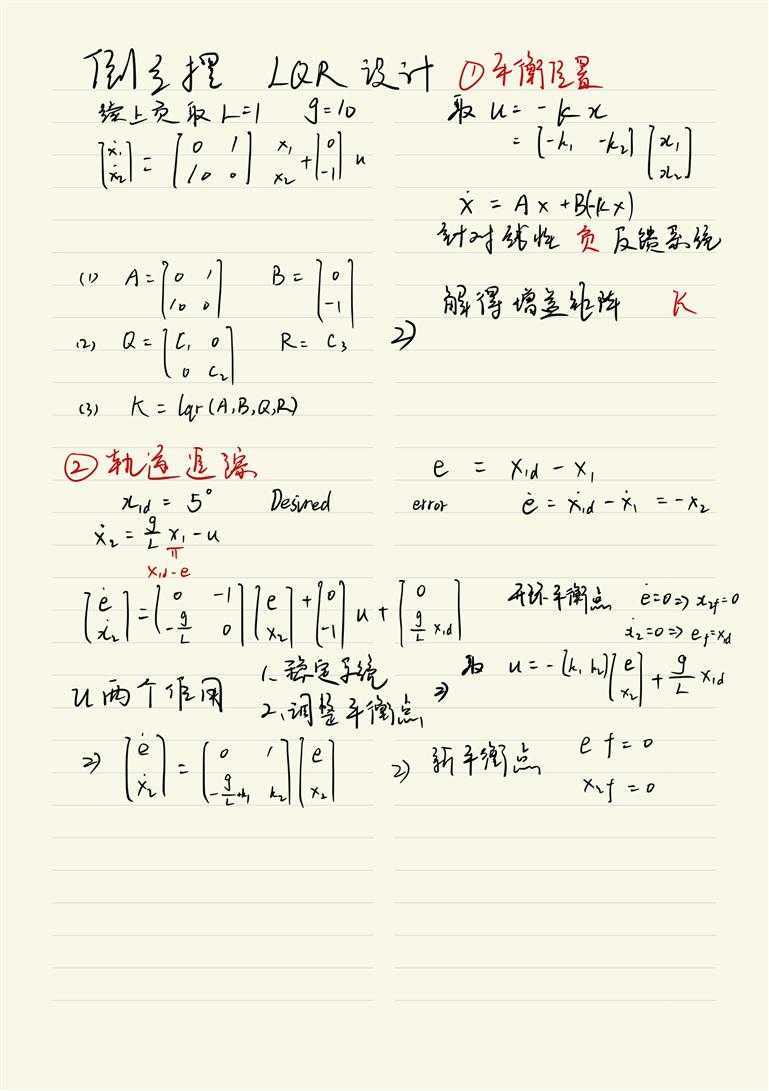 倒立摆 LQR 设计 ①平衡位置
续上页 取 L=1 g=10
[ẋ₁; ẋ₂] = [0 1; 10 0] x₁ x₂ + [0; -1] u
取 u = -kx
= [-k₁ -k₂] [x₁; x₂]
ẋ = Ax + B(-kx)
针对线性 负 反馈系统
(1) A = [0 1; 10 0] B = [0; -1]
(2) Q = [C₁ 0; 0 C₂] R = C₃
(3) K = lqr(A,B,Q,R)
2) 解得增益矩阵 K
② 轨迹追踪
x₁d = 5° Desired
ẋ₂ = g/L x₁ - u
x₁d-e
e = x₁d - x₁
error ė = ẋ₁d - ẋ₁ = -x₂
[ė; ẋ₂] = [0 -1; -g/L 0] [e; x₂] + [0; -1] u + [0; g/L x₁d]
开环平衡点 ė=0 => x₂f=0
ẋ₂=0 => ef=x₁d
u两个作用 1、稳定系统
2、调整平衡点
2) 取 u = -[k₁ k₂] [e; x₂] + g/L x₁d
2) [ė; ẋ₂] = [0 1; -g/L+k₁ k₂] [e; x₂]
2) 新平衡点 ef=0
x₂f=0